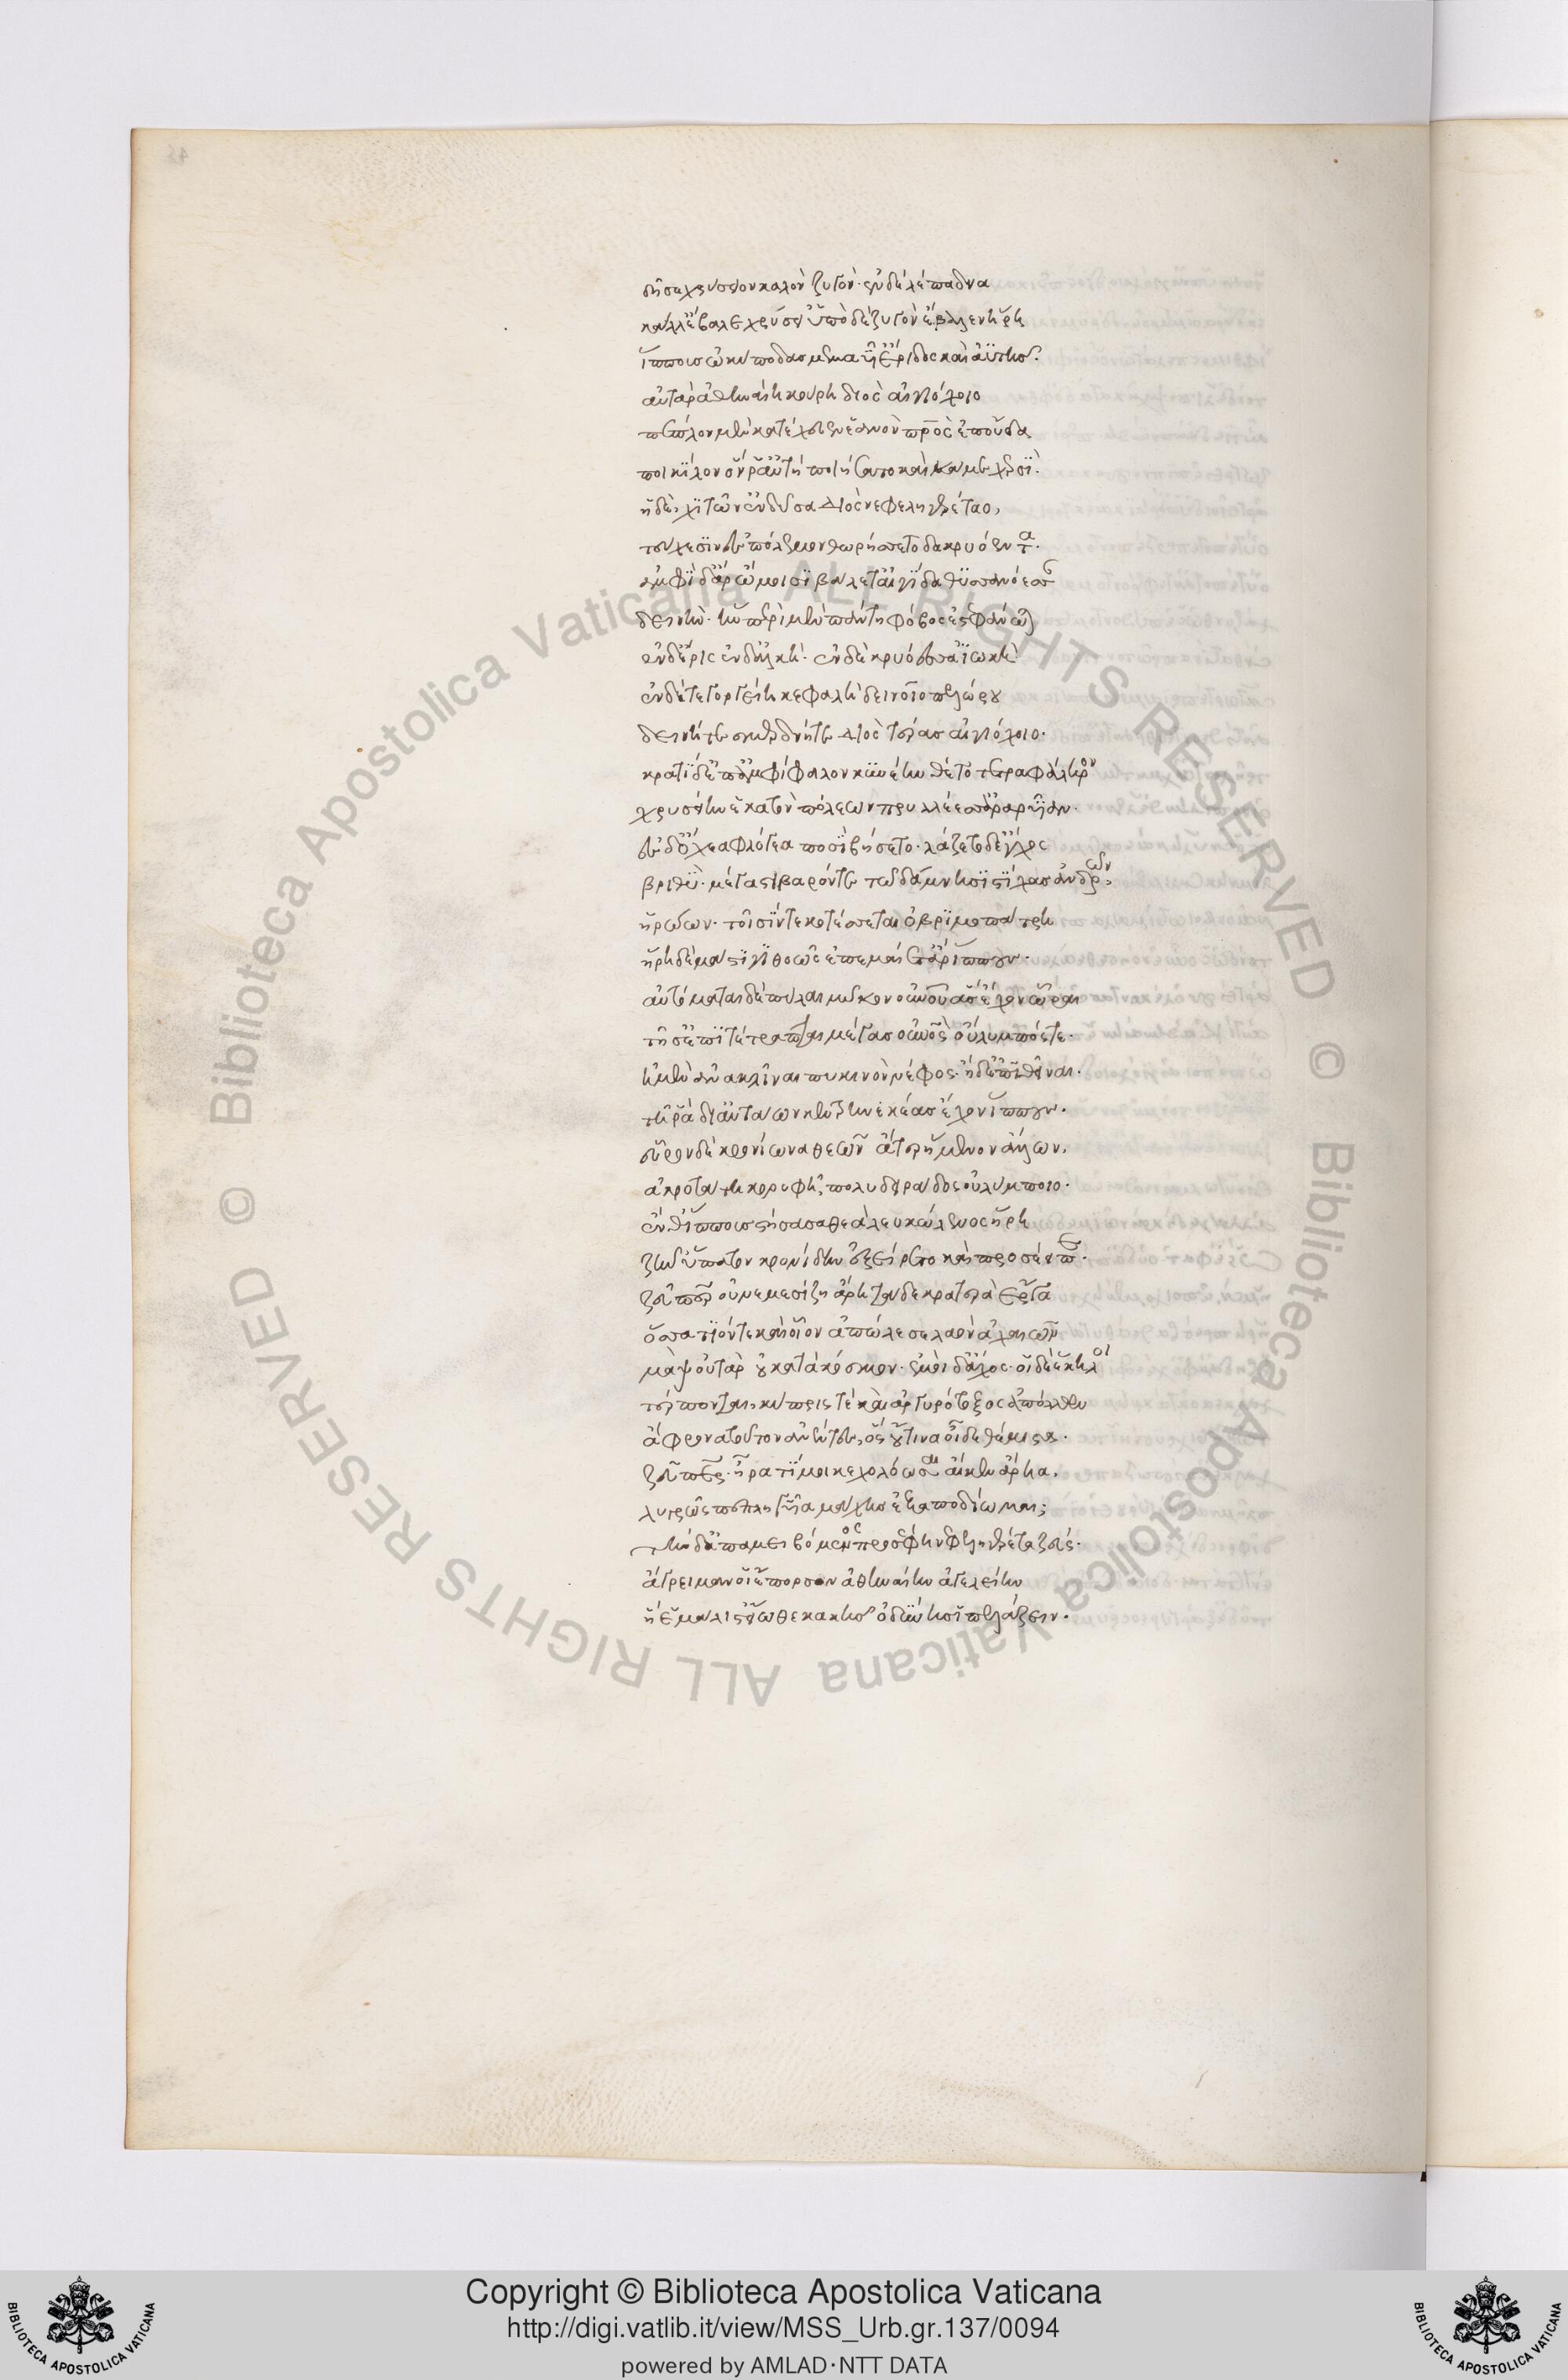 δῆσε χρύσειον καλὸν ζυγόν· ἐν δὲ λέπαδνα
κάλλ' ἔβαλε χρύσει'· ὑπὸ δὲ ζυγὸν ἤγαγεν ἥρη
ἵππους ὠκύποδας μεμαυῖ' ἔριδος καὶ ἀϋτῆς.
αὐτὰρ ἀθηναίη κούρη διὸς αἰγιόχοιο
πέπλον μὲν κατέχευεν ἑανὸν πρὸς ἐπ' οὔδα
ποικίλον ὅν ῥ' αὐτὴ ποιήσατο καὶ κάμε χερσί.
ἡ δὲ χιτῶν' ἐνδῦσα Διὸς νεφεληγερέταο,
τεύχεσιν ἐς πόλεμον θωρήσσετο δακρυόεντα.
ἀμφὶ δ' ἄρ' ὤμοισι βάλετ' αἰγίδα θυσσανόεσσ
δεινήν· ἣν περὶ μὲν πάντη φόβος ἐστεφάνωται
ἐν δ' ἔρις ἐν δ' ἀλκή· ἐν δὲ κρυόεσσα ἰωκή
ἐν δέ τε γοργείη κεφαλὴ δεινοῖο πελώρου
δεινή τε σμερδνή τε Διὸς τέρας αἰγιόχοιο.
κρατὶ δ' ἐπ' ἀμφίφαλον κυνέην θέτο τετραφάληρον
χρυσείην ἑκατὸν πόλεων πρυλλέεσσ' ἀραρυῖαν.
ἐς δ' ὄχεα φλόγεα ποσὶ βήσετο· λάζετο δ' ἔγχος
βριθύ· μέγα στιβαρόν τε τῶ δάμνησι στίχας ἀνδρῶν,
ἡρώων· τοῖσίν τε κοτέσσεται ὀβριμοπάτρη
ἥρη δὲ μάστιγι θοῶς ἐπεμαίετ' ἄρ' ἵππους.
αὐτόμαται δὲ πύλαι μύκον οὐρανοῦ ἃς ἔχον ὧραι
τῆς ἐπιτέτραπται μέγας οὐρανὸς οὔλυμπός τε.
ἠμὲν ἀνακλῖναι πυκινὸν νέφος· ἠδ' ἐπιθεῖναι.
τῆ ῥα δι' αὐτάων κεντρηνεκέας ἔχον ἵππους.
εὗρον δὲ κρονίωνα θεῶν ἄτερ ἥμενον ἄλλων.
ἀκροτάτη κορυφῆ, πολυδειράδος οὐλύμποιο.
ἔνθ' ἵππους στήσασα θεὰ λευκώλενος ἥρη
ζῆν' ὕπατον κρονίδην ἐξείρετο καὶ προσέειπε.
ζεῦ πάτερ οὐ νεμεσίζη ἄρη τάδε κρατερὰ ἔργα
ὁσσάτιόν τε καὶ οἷον ἀπώλεσε λαὸν ἀχαιῶν
μὰψ ἀτὰρ οὐ κατὰ κόσμον· ἐμοὶ δ' ἄχος· οἱ δὲ ἕκηλοι
τέρπονται, κύπρις τε καὶ ἀργυρότοξος ἀπόλλων
ἄφρονα τοῦτον ἀνέντες, ὃς οὔτινα οἶδε θέμιστα.
ζεῦ πάτερ· ἦ ῥά τί μοι κεχολώσεαι αἴ κεν ἄρηα.
λυγρῶς πεπληγυῖα μάχης ἐξ ἀποδίωμαι;
τὴν δ' ἀπαμειβόμενος προσέφη νεφεληγερέτα ζεύς.
ἄγρει μάν οἱ ἔπορσον ἀθηναίην ἀγελείην
ἥ ἑ μάλιστ' εἴωθε κακῆς ὀδύνησι πελάζειν.
Copyright © Biblioteca Apostolica Vaticana
http://digi.vatlib.it/view/MSS_Urb.gr.137/0094
powered by AMLAD·NTT DATA